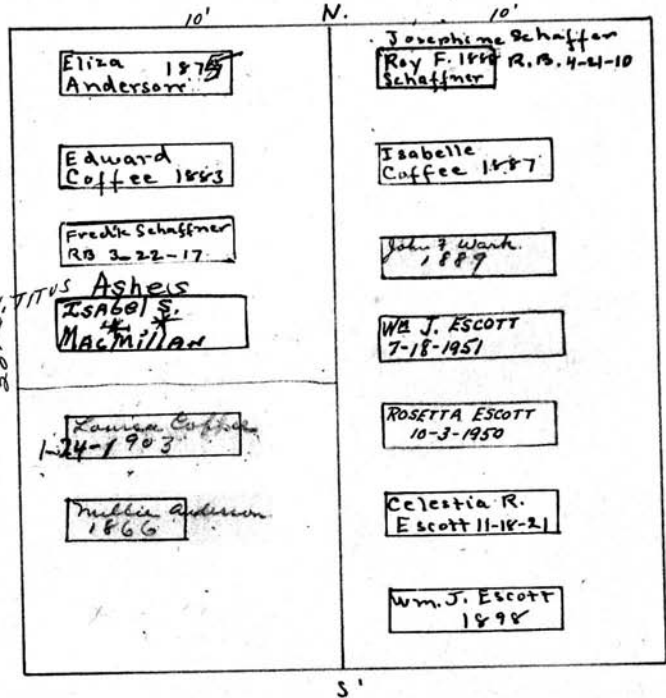 10' N. 10'
Eliza 1875
Anderson
Edward
Coffee 1883
Fredk Schaffner
RB 3-22-17
TITUS Ashes
ISAbel S.
MACMillAN
Louisa Coffee
1-24-1903
Millie Anderson
1866
Josephine Schaffer
Roy F. 1888 R.B. 4-21-10
Schaffner
Isabelle
Coffee 1887
John F Wark.
1889
WM J. ESCOTT
7-18-1951
ROSETTA ESCOTT
10-3-1950
Celestia R.
Escott 11-18-21
Wm. J. Escott
1898
S'